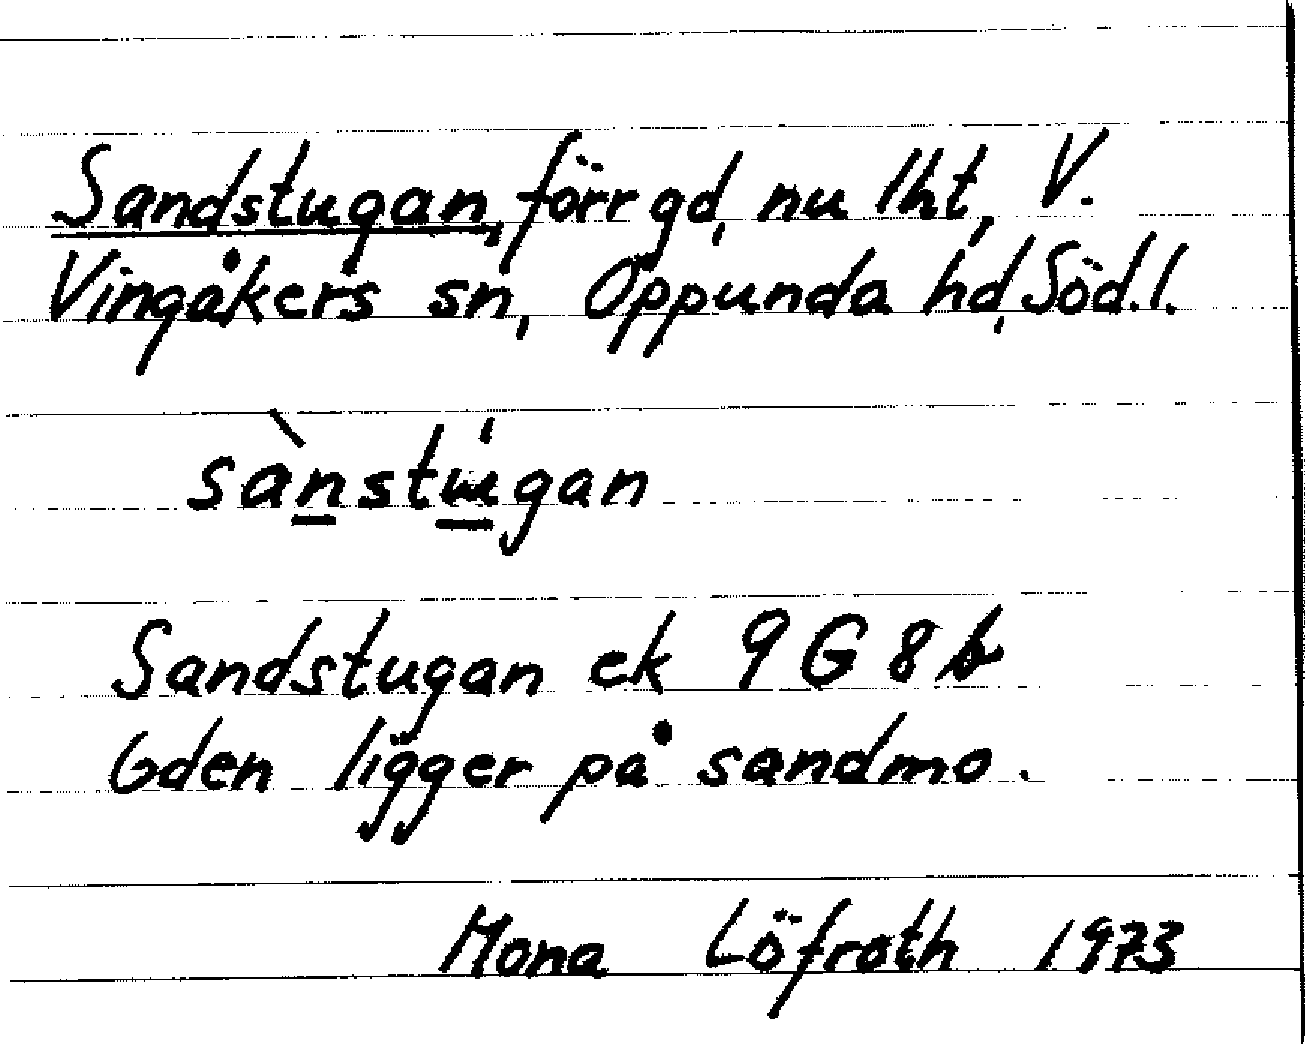 Sandstugan, förr gd, nu lht, V.
Vingåkers sn, Oppunda hd, Söd.l.
sànstúgan
Sandstugan ek 9G8b
Gden ligger på sandmo.
Mona Löfroth 1973